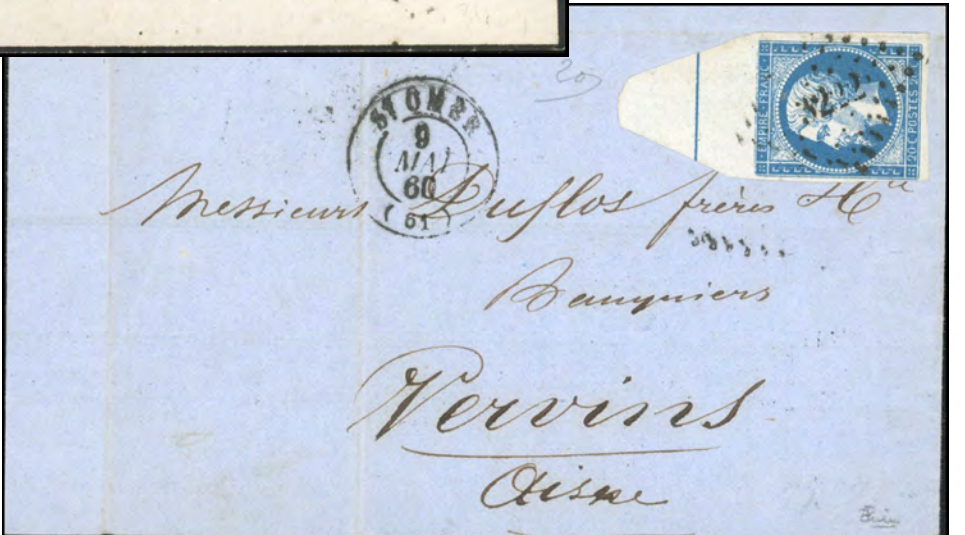 20
ST OMER
9
MAI
60
( 61 )
3222
EMPIRE FRANC
20 C POSTES 20 C
Messieurs Duflos frères & Cie
Banquiers
Vervins
Aisne